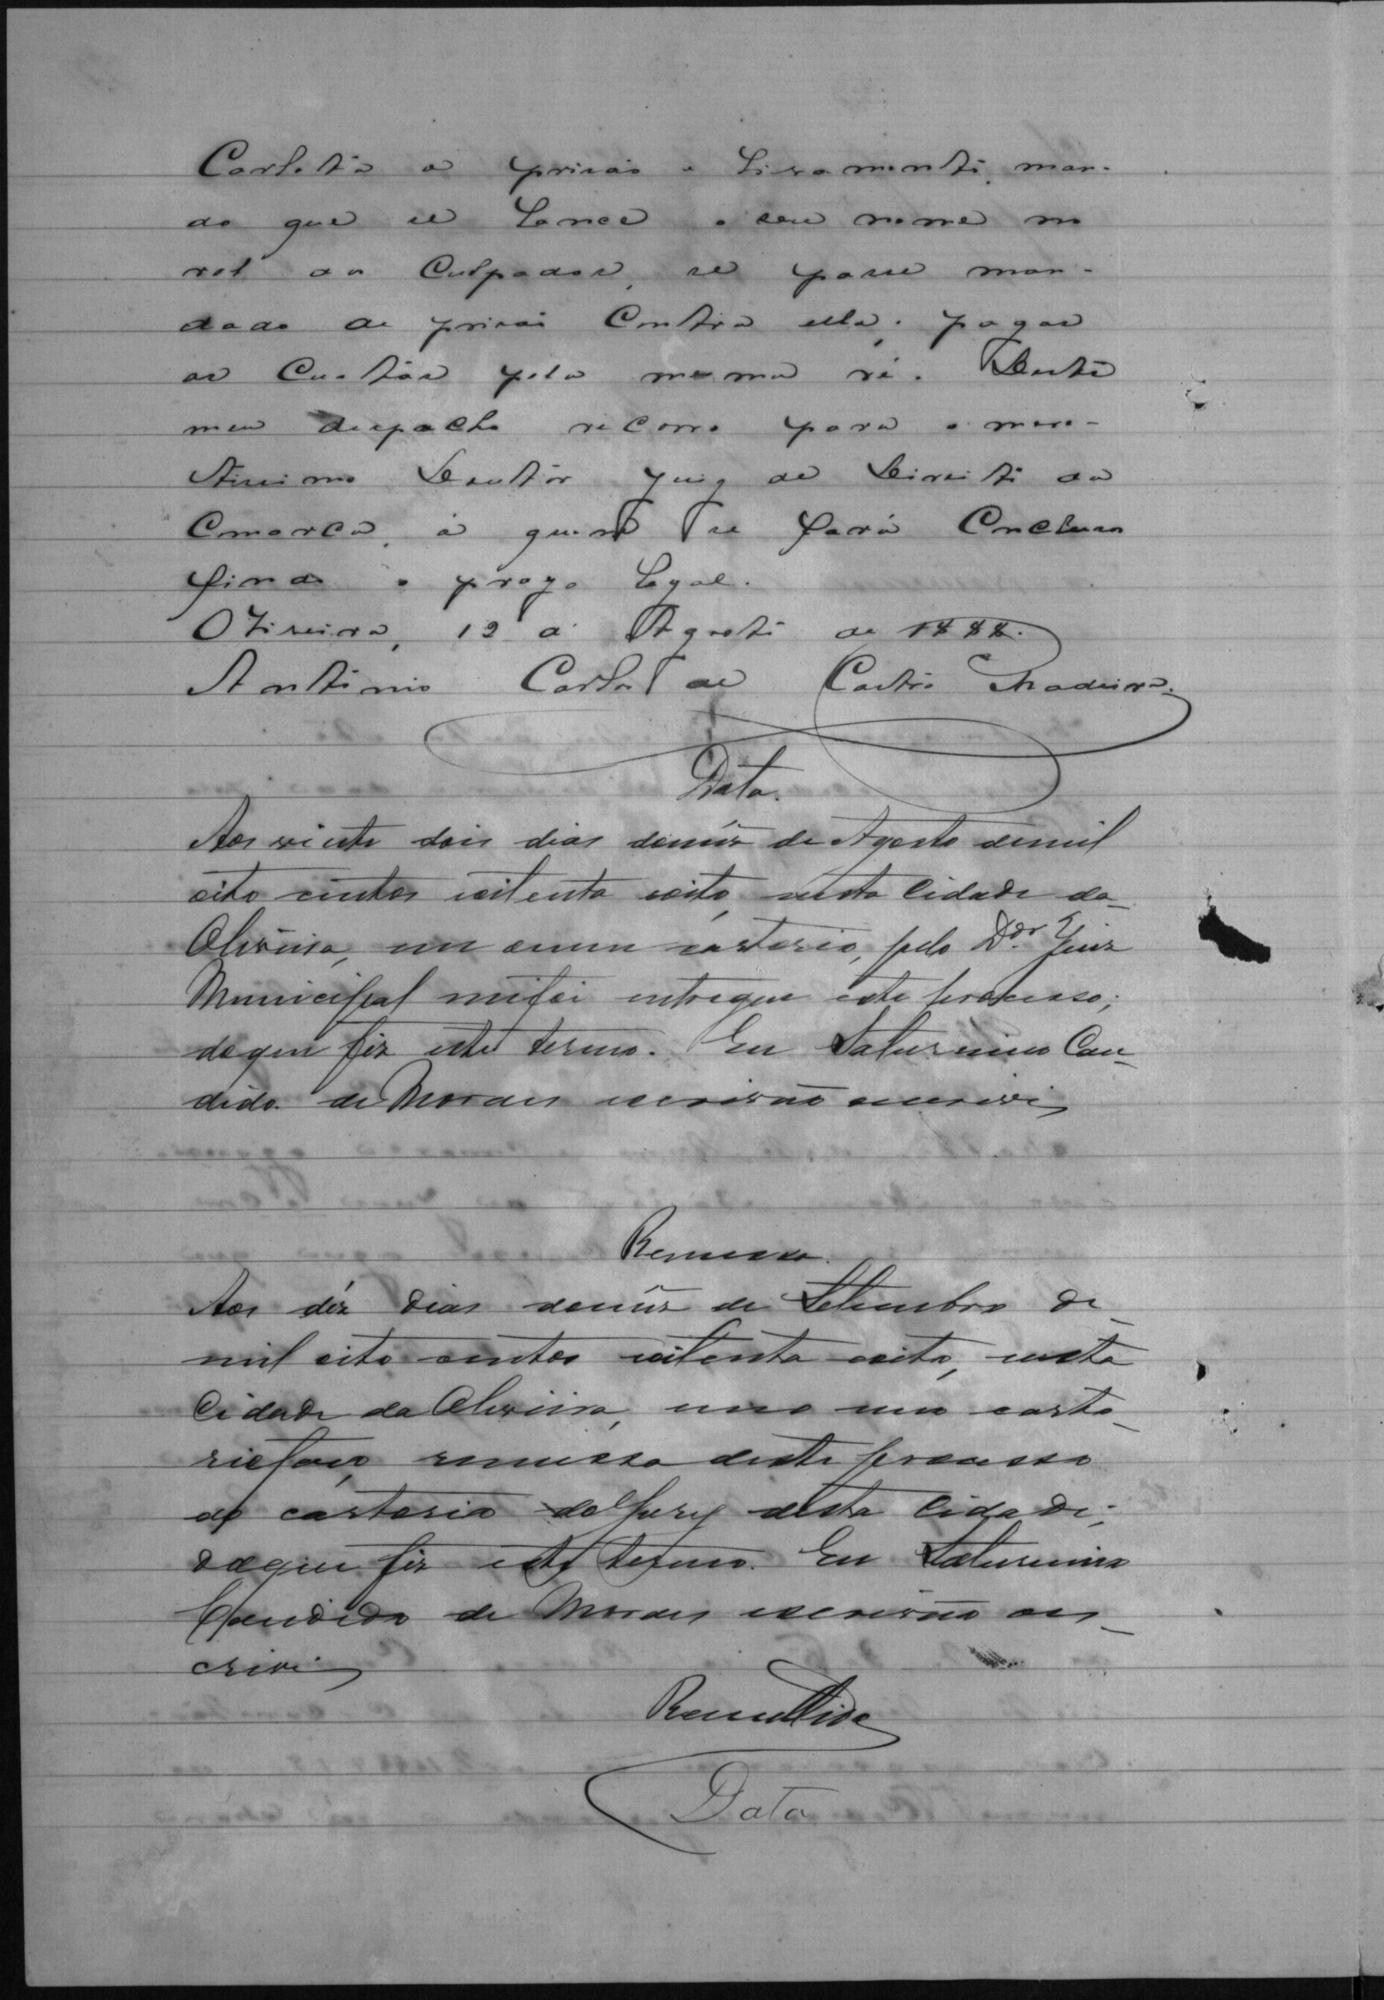 Carlota a prisão e livramento, man-
do que se lance o seu nome no
rol dos Culpados, se passe man-
dado de prisão Contra ella; pagas
as Custas pela mesma ré. Deste
meu despacho recorro para o mere-
tissimo Doutor Juiz de Direito da
Comarca, á quem se fará Concluso
findo o prazo legal.
Oliveira, 12 de Agosto de 1888.
Antonio Carlos de Castro Madeira.
Data.
Aos vinte dois dias domêz de Agosto demil
oito centos oitenta oito, nesta Cidade da
Oliveira, em o meu cartorio, pelo Dor. Juiz
Municipal mefoi entregue este processo;
doque fiz este termo. Eu Saturnino Can-
dido de Moraes escrivão oescrevi
Remessa.
Aos déz dias domêz de Setembro de
mil oito centos oitenta oito, nesta
Cidade da Oliveira, em o meu carto-
rio faço remessa deste processo
ao cartorio do Jury desta Cidade;
doque fiz este termo. Eu Saturnino
Candido de Moraes escrivão oes-
crevi
Remettido
Data